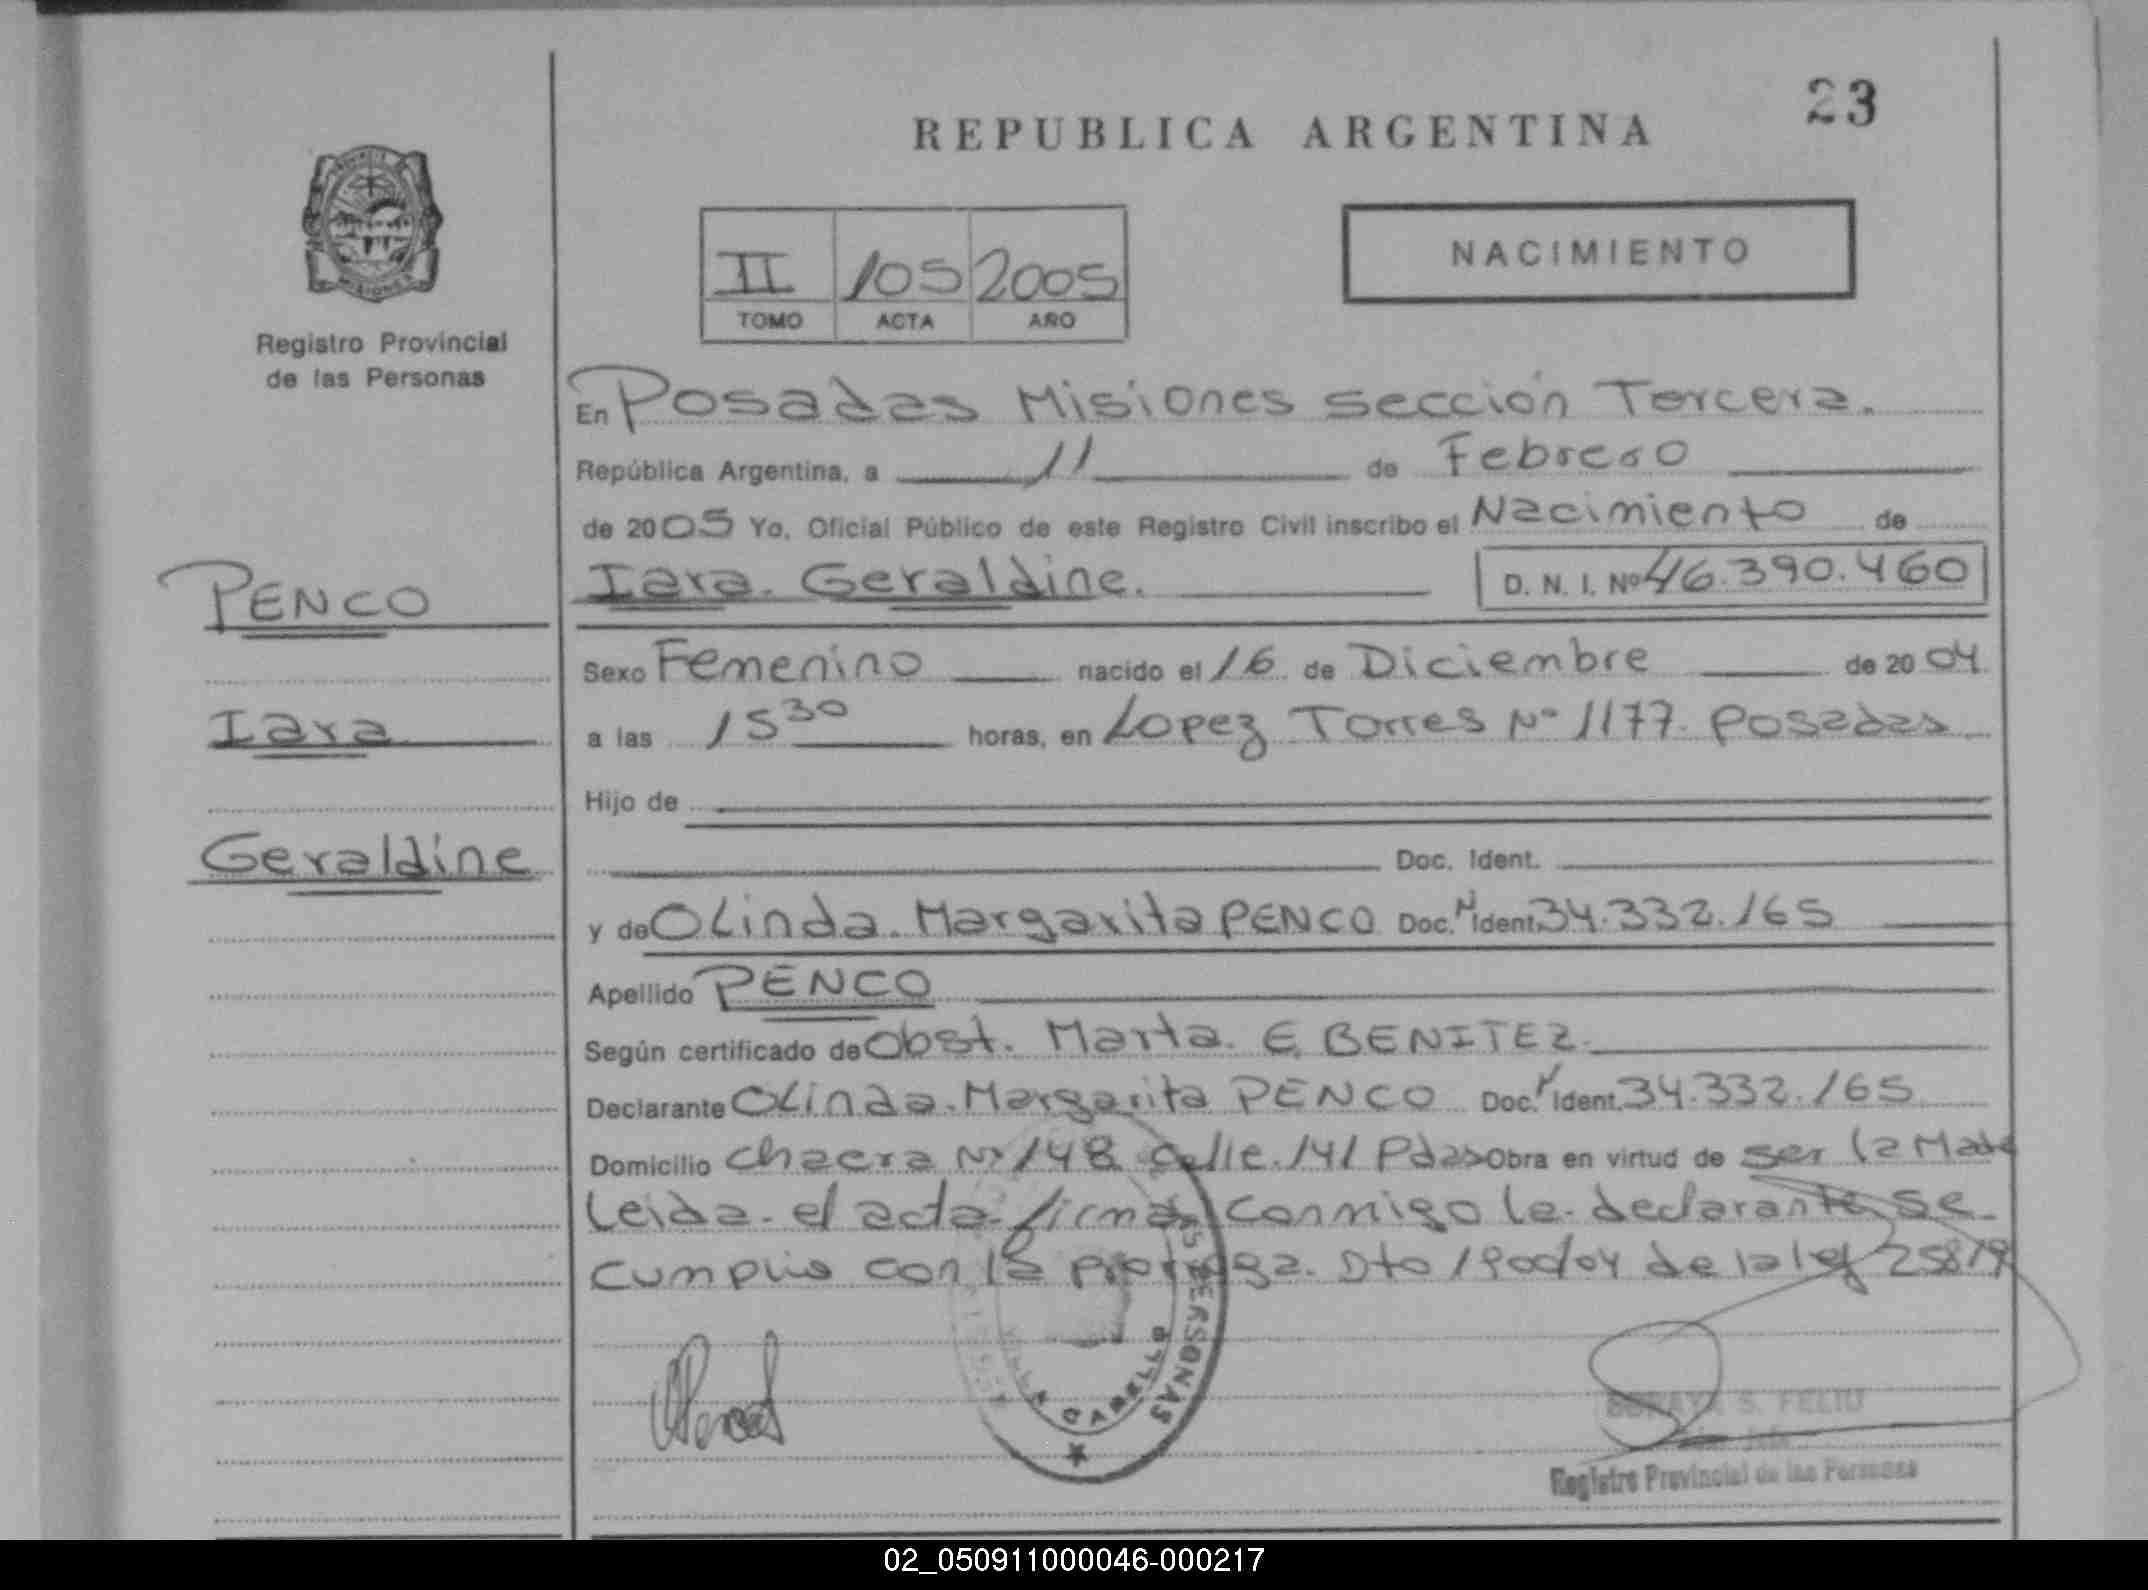 23
REPUBLICA ARGENTINA
NACIMIENTO
II 105 2005
TOMO ACTA AÑO
Registro Provincial
de las Personas
PENCO
Iara
Geraldine
En Posadas Misiones sección Tercera.
República Argentina, a 11 de Febrero
de 2005 Yo, Oficial Público de este Registro Civil inscribo el Nacimiento de
Iara. Geraldine. D. N. I. Nº 46.390.460
Sexo Femenino nacido el 16 de Diciembre de 2004
a las 15 30 horas, en Lopez Torres Nº 1177. Posadas
Hijo de
Doc. Ident.
y de Olinda. Margarita PENCO Doc. N Ident. 34.332.165
Apellido PENCO
Según certificado de Obst. Marta. E. BENITEZ.
Declarante Olinda. Margarita PENCO Doc. N Ident. 34.332.165
Domicilio chacra Nº 148 calle. 141 Pdas Obra en virtud de ser la Madre
Leida. el acta. firma conmigo la declarante, se
cumplio con la prorroga. Dto 190d/04 de la ley 25819
PERSONAS
VILLA CABELLO
SORAYA S. FELIU
Registro Provincial de las Personas
02_050911000046-000217